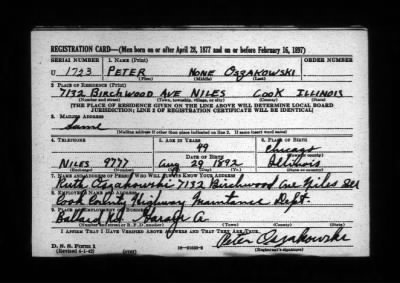 REGISTRATION CARD—(Men born on or after April 28, 1877 and on or before February 16, 1897)
SERIAL NUMBER 1. NAME (Print) ORDER NUMBER
U 1723 PETER NONE OSZAKOWSKI
(First) (Middle) (Last)
2. PLACE OF RESIDENCE (Print)
7132 BIRCHWOOD AVE NILES COOK ILLINOIS
(Number and street) (Town, township, village, or city) (County) (State)
[THE PLACE OF RESIDENCE GIVEN ON THE LINE ABOVE WILL DETERMINE LOCAL BOARD
JURISDICTION; LINE 2 OF REGISTRATION CERTIFICATE WILL BE IDENTICAL]
3. MAILING ADDRESS
Same
[Mailing address if other than place indicated on line 2. If same insert word same]
4. TELEPHONE 5. AGE IN YEARS 6. PLACE OF BIRTH
49 Chicago
DATE OF BIRTH (Town or county)
NILES 9777 Aug 29 1892 Illinois
(Exchange) (Number) (Mo.) (Day) (Yr.) (State or country)
7. NAME AND ADDRESS OF PERSON WHO WILL ALWAYS KNOW YOUR ADDRESS
Ruth Oszakowski 7132 Birchwood Ave Niles Ill
8. EMPLOYER'S NAME AND ADDRESS
Cook County Highway Maintance Dept.
9. PLACE OF EMPLOYMENT OR BUSINESS
Ballard Rd. Garage
(Number and street or R. F. D. number) (Town) (County) (State)
I AFFIRM THAT I HAVE VERIFIED ABOVE ANSWERS AND THAT THEY ARE TRUE.
Peter Oszakowski
D. S. S. Form 1
(Revised 4-1-42) (over) (Registrant's signature)